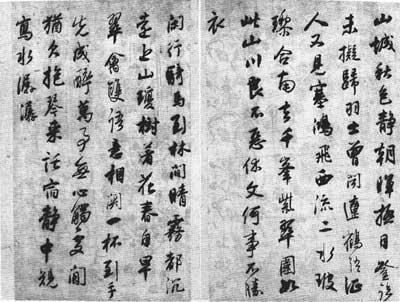 山城秋色靜朝暉極目登臨
未擬歸羽士曾聞遼鶴語征
人又見塞鴻飛西流二水玻
瓈合南去千峯紫翠圍如
此山川良不惡休文何事不勝
衣
閑行騎馬到林間晴霧都沉
上山瓊樹着花春自早
翠禽雙語意相關一杯到手
先成醉萬事無心觸處閒
猶欠抱琴來託宿靜中
寫水潺潺